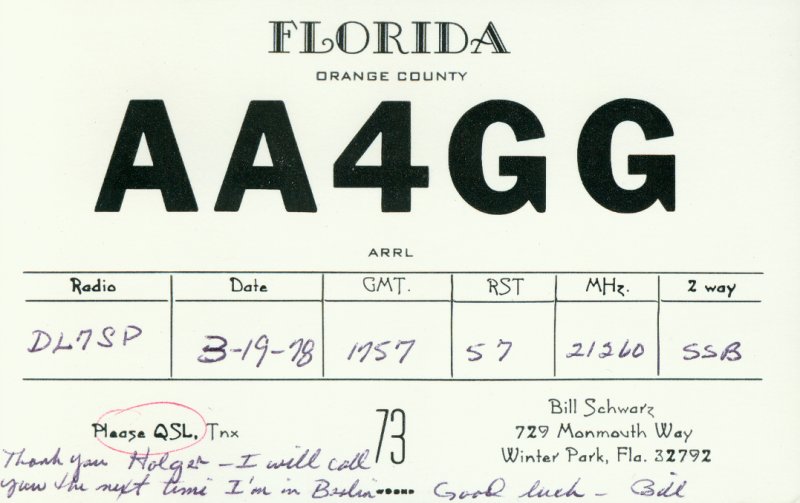 FLORIDA
ORANGE COUNTY
AA4GG
ARRL
Radio Date GMT. RST MHz. 2 way
DL7SP 3-19-78 1757 57 21260 SSB
Please QSL, Tnx
73
Bill Schwarz
729 Monmouth Way
Winter Park, Fla. 32792
Thank you Holger - I will call
you the next time I'm in Berlin..... Good luck - Bill